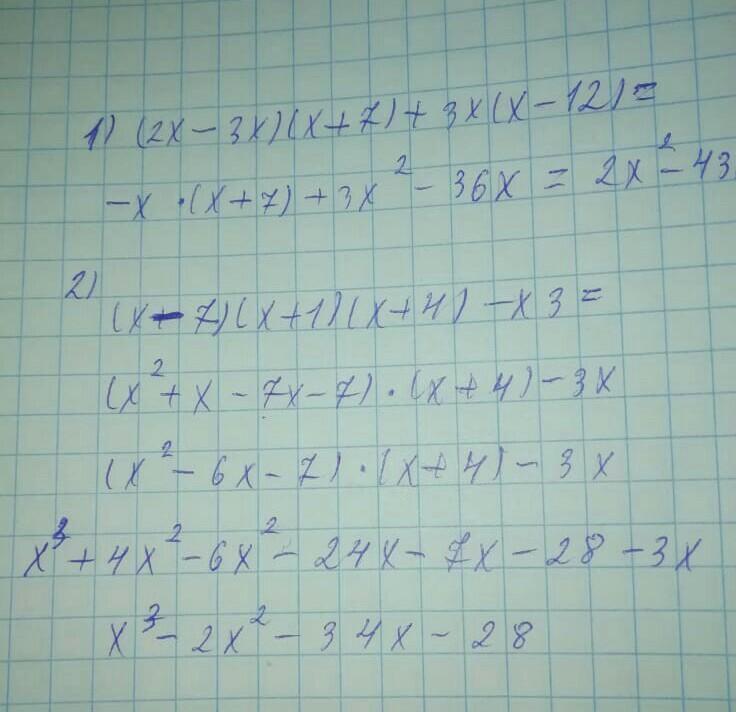 1) (2x - 3x)(x+7) + 3x(x-12) =
-x · (x+7) + 3x² - 36x = 2x² - 43
2)
(x - 7)(x+1)(x+4) - x3 =
(x² + x - 7x - 7) · (x+4) - 3x
(x² - 6x - 7) · (x+4) - 3x
x³ + 4x² - 6x² - 24x - 7x - 28 - 3x
x³ - 2x² - 34x - 28